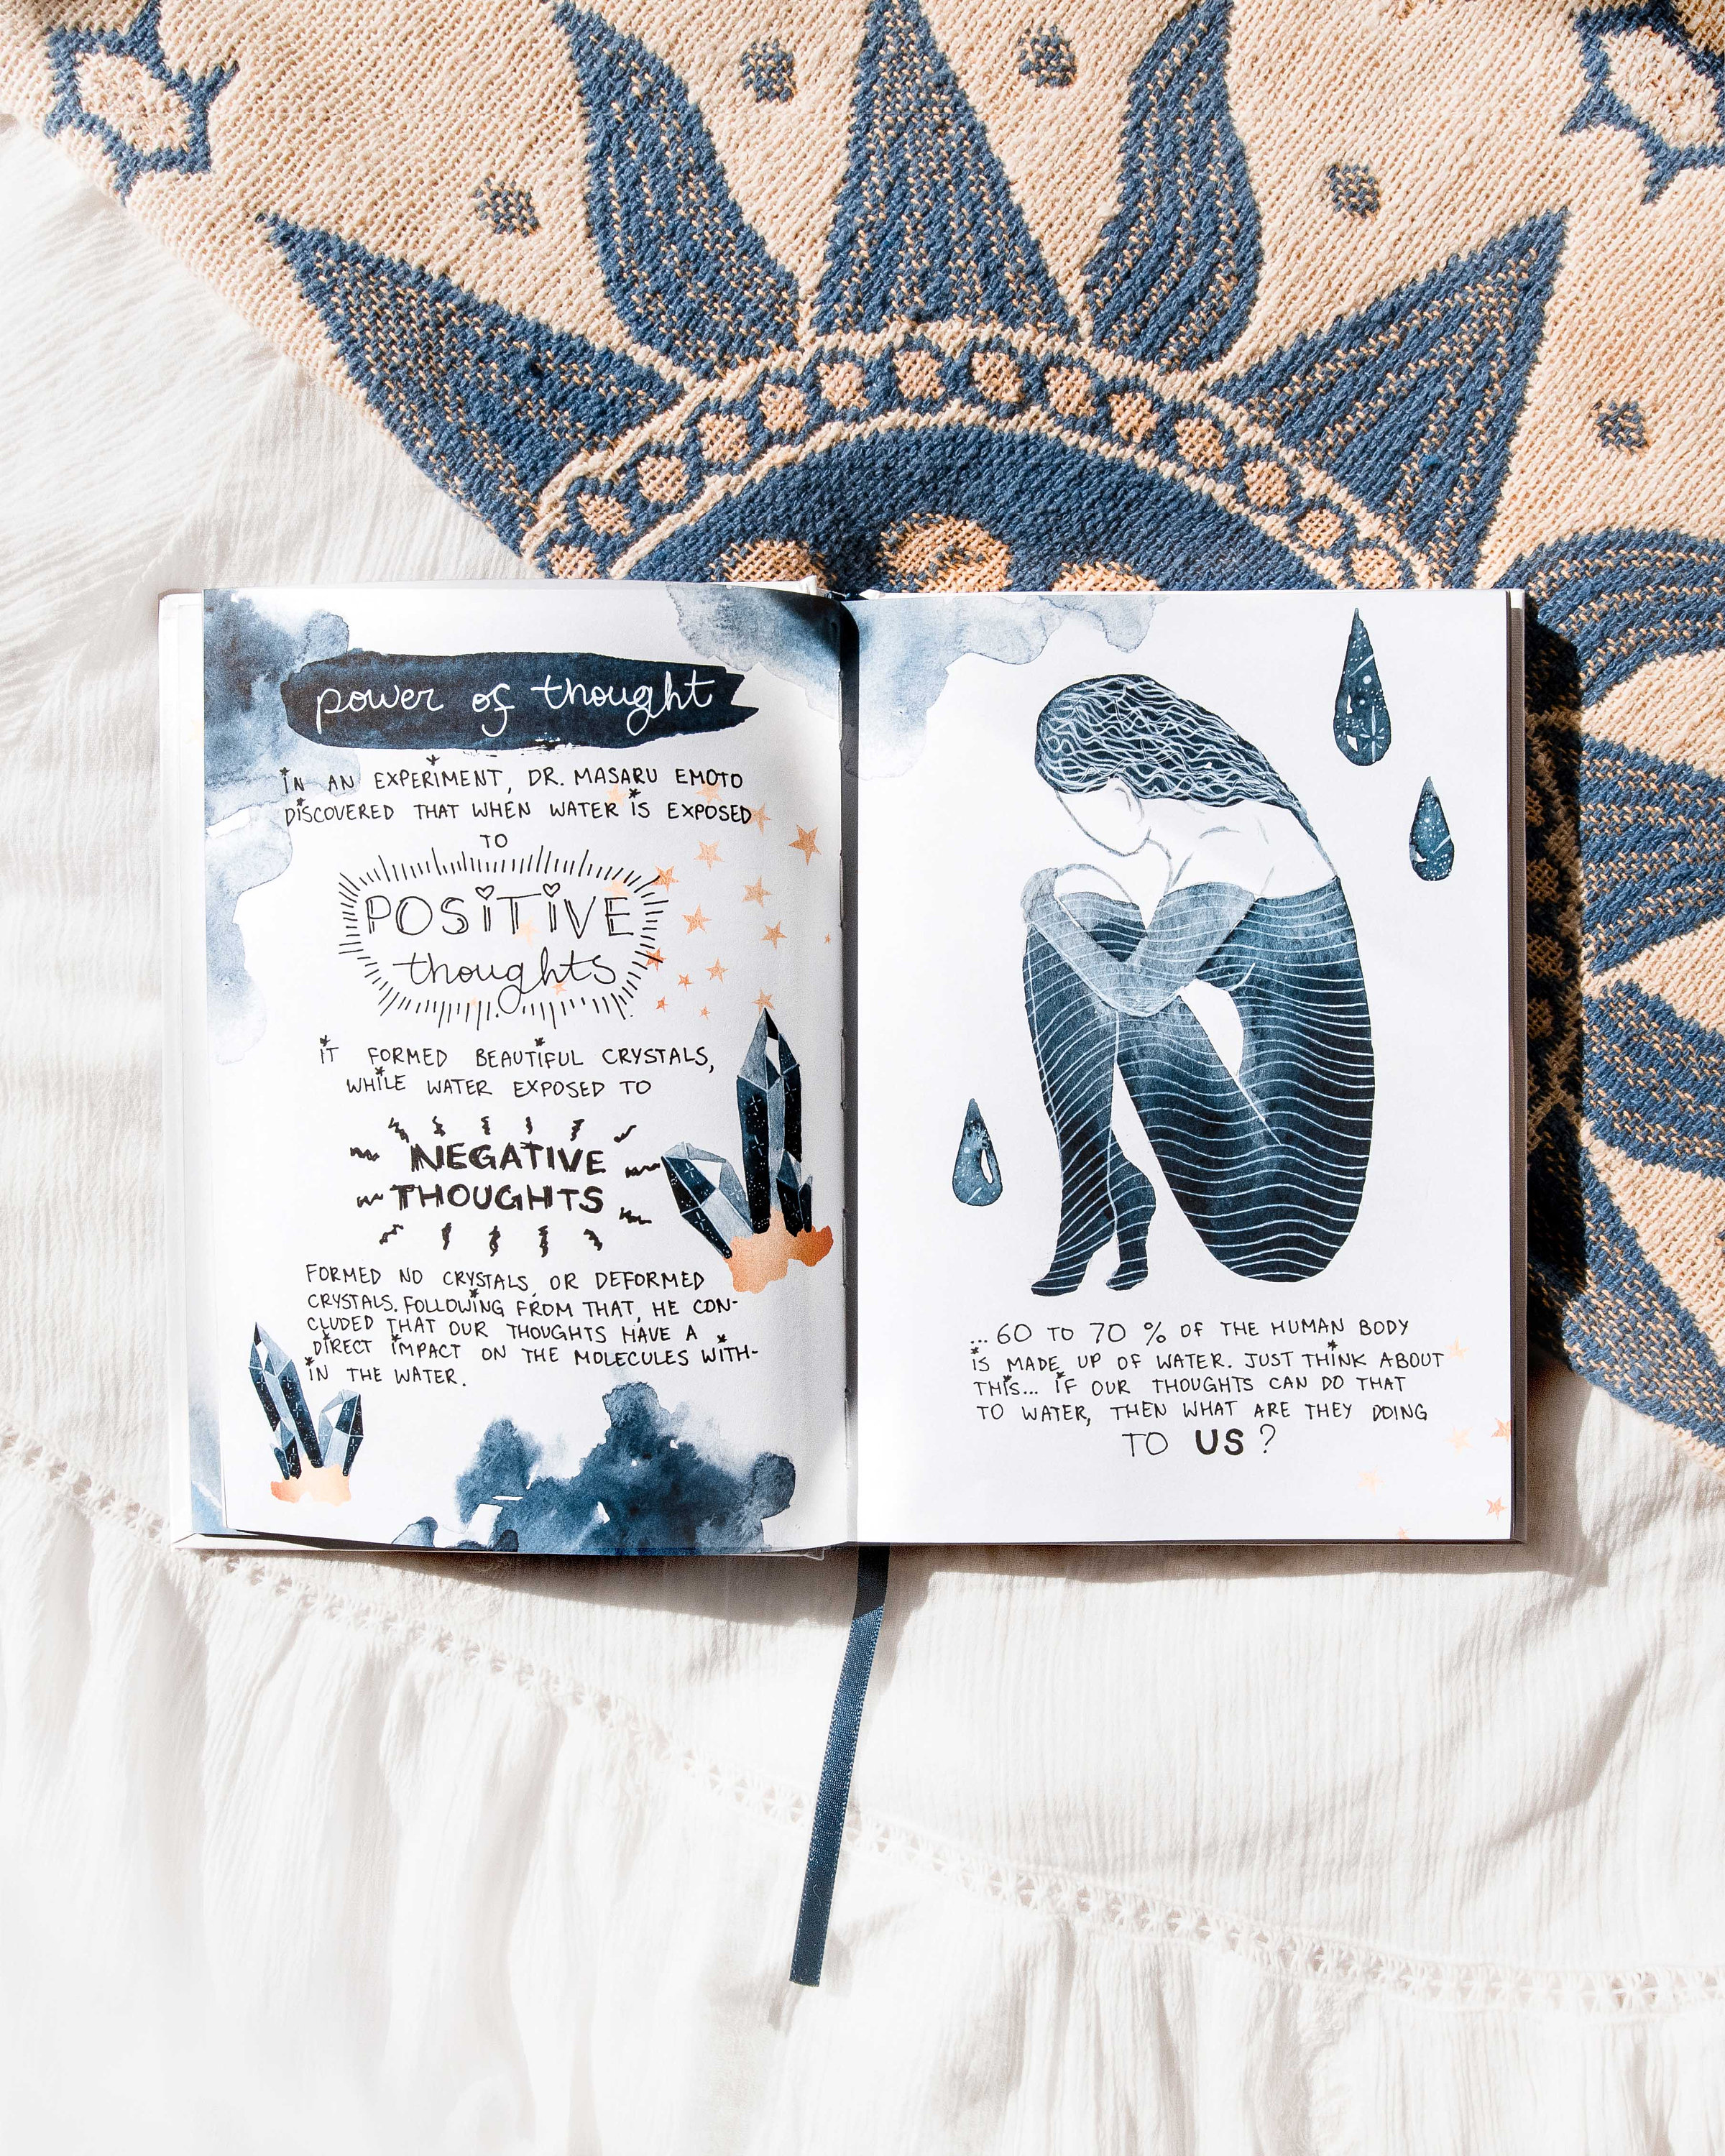 power of thought
IN AN EXPERIMENT, DR. MASARU EMOTO
DISCOVERED THAT WHEN WATER IS EXPOSED
TO
POSITIVE
thoughts
IT FORMED BEAUTIFUL CRYSTALS,
WHILE WATER EXPOSED TO
NEGATIVE
THOUGHTS
FORMED NO CRYSTALS OR DEFORMED
CRYSTALS. FOLLOWING FROM THAT, HE CON-
CLUDED THAT OUR THOUGHTS HAVE A
DIRECT IMPACT ON THE MOLECULES WITH-
IN THE WATER.
... 60 TO 70 % OF THE HUMAN BODY
IS MADE UP OF WATER. JUST THINK ABOUT
THIS... IF OUR THOUGHTS CAN DO THAT
TO WATER, THEN WHAT ARE THEY DOING
TO US?